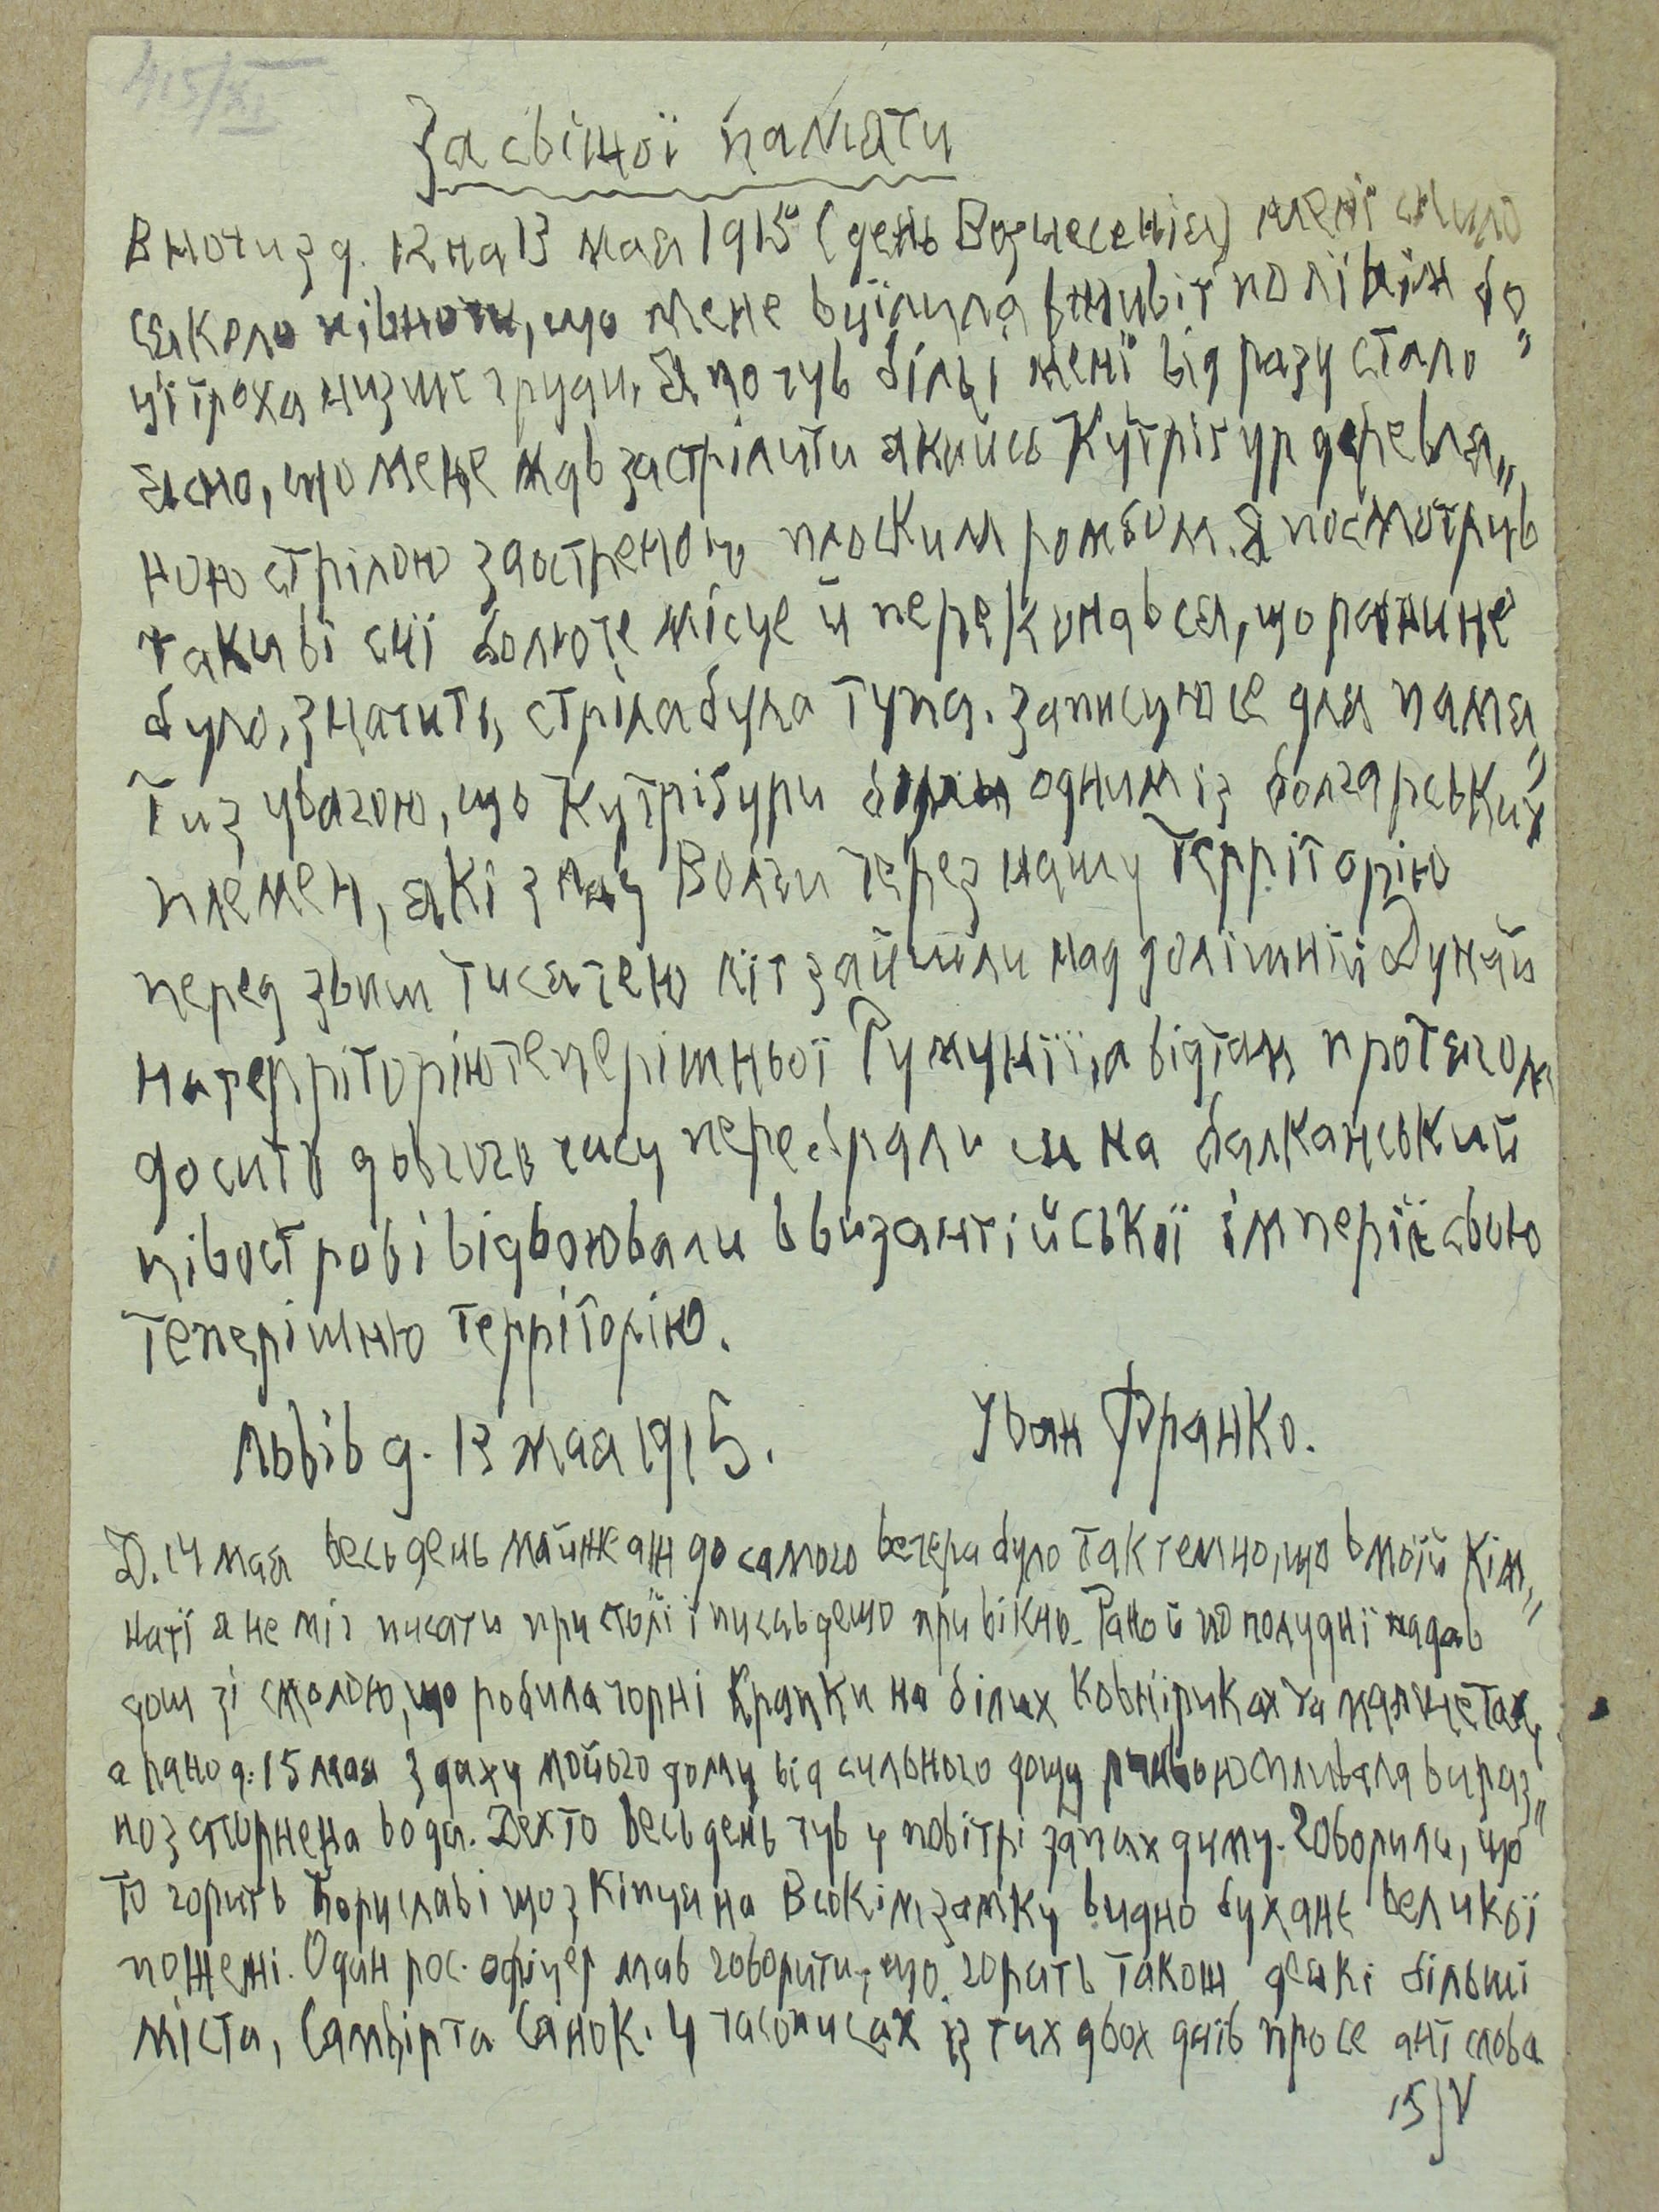 За свіжої памяти
В ночи з д. 12 на 13 мая 1915 (день Вознесенія) мені снило
ся коло півночи, що мене вцілила в живіт по лівім бо„
ці троха низше груди. Я почув біль і мені відразу стало
ясно, що мене мав застрілити якийсь Кутрігур деревля„
ною стрілою заостреною плоским ромбом. Я посмотрив
таки ві снї болюче місце й переконався, що рани не
було, значить, стріла була тупа. Записую се для памя„
ти з увагою, що Кутрігури були одним із болгарських
племен, які з над Волги через нашу територію
перед звиш тисячею літ зайшли над долішній Дунай
на территорію теперішньої Румунії, а відтам протягом
досить довгого часу перебрали ся на балканський
півострові відвоювали в византійської імперії свою
теперішню територію.
Львів д. 13 мая 1915.
Іван Франко.
Д. 14 мая весь день майже аж до самого вечера було так темно, що в моїй кім„
наті я не міг писати при столї і писав дещо при вікно. Рано й по полудні падав
дощ зі смолою, що робила чорні крапки на білих ковніриках та манжетах,
а рано д. 15 мая з даху мойого дому від сильного дощу ринвою спливала вираз„
но з чорнена вода. Дехто весь день чув у повітрі запах диму. Говорили, що
то горить Борислав і що з Кіпця на Всокім замку видно буханє великої
пожежі. Один рос. офіцер мав говорити, що горить також деякі більші
міста, Самбір та Сянок. У часописах із тих двох днів про се анї слова
15/V